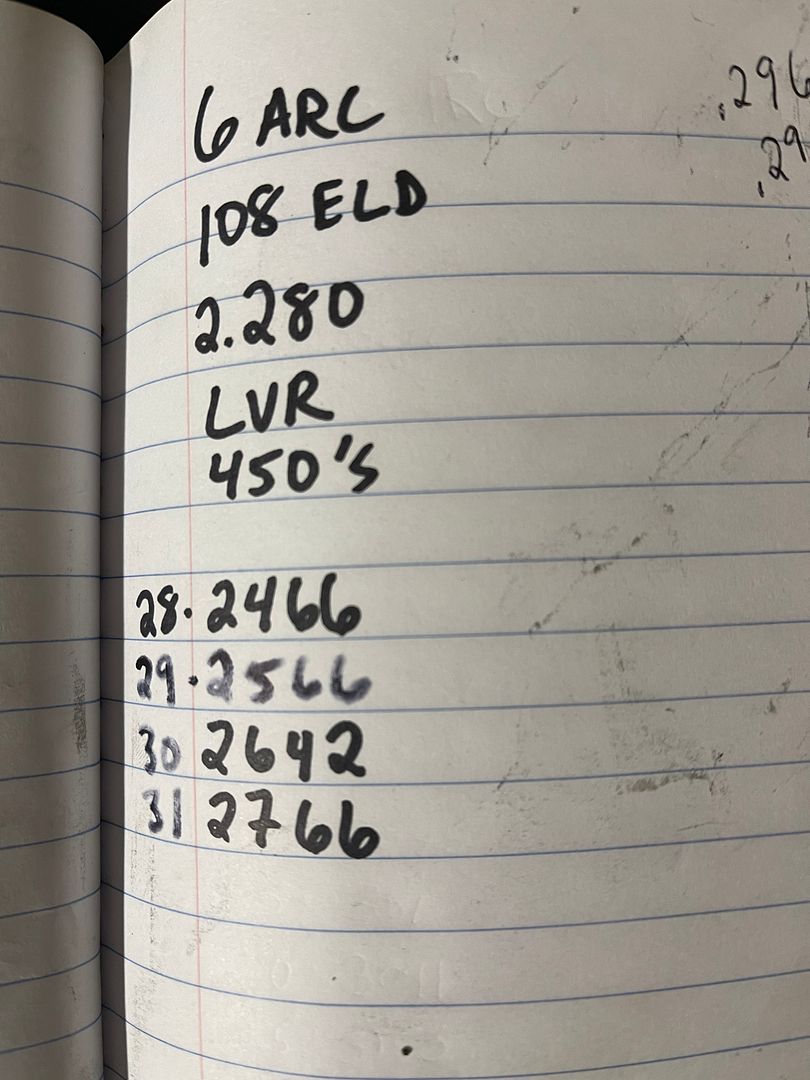 6 ARC
108 ELD
2.280
LVR
450's
28. 2466
29. 2566
30 2642
31 2766
.296
.29